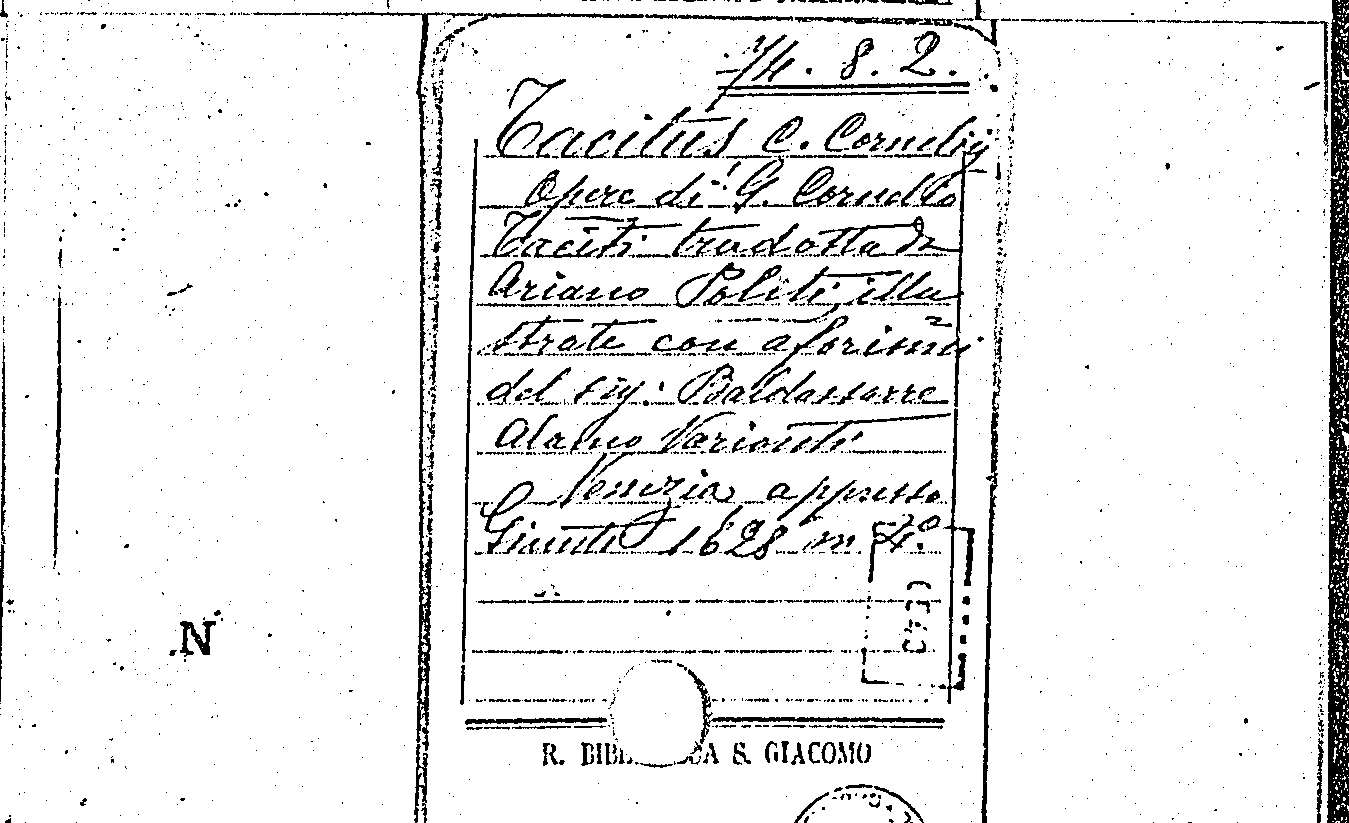 74. 8. 2.
Tacitus C. Cornelij
Opere di G. Cornelio
Taciti tradotta da
Ariano Politi, illu
strate con aforismi
del sig. Baldassarre
Alamo Varienti
Venezia appresso
Giunti 1628 in 4.º
N
R. BIB CA S. GIACOMO